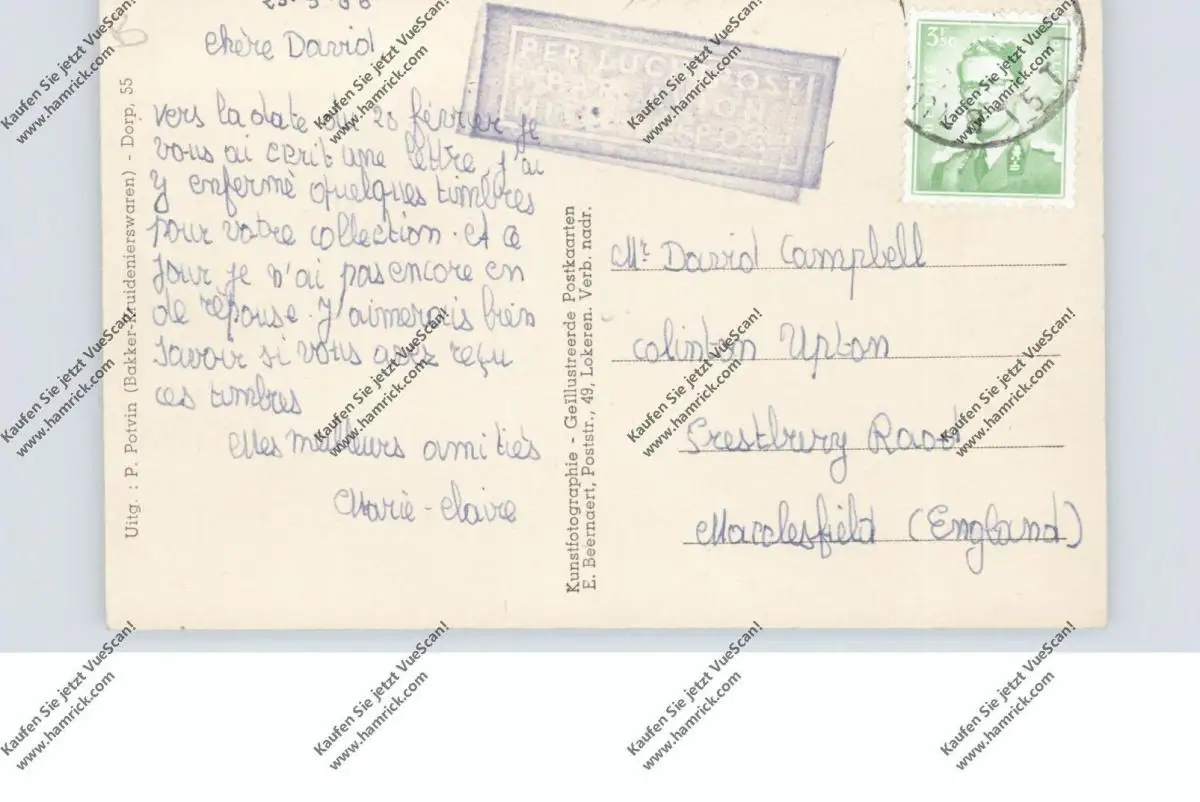 chère David
vers la date du 20 février je
vous ai ecrit une lettre, j'ai
y enfermè quelques timbres
pour votre collection. et ce
jour je n'ai pas encore en
de rèponse. J'aimerais bien
savoir si vous avez reçu
ces timbres
Mes meilleurs amitiés
Marie-claire
Uitg. : P. Potvin (Bakker-Kruidenierswaren) - Dorp, 55
Kunstfotographie - Geïllustreerde Postkaarten
E. Beernaert, Poststr., 49, Lokeren. Verb. nadr.
PER LUCHTPOST
PAR AVION
MIT LUFTPOST
3F50
Mr David Campbell
colinton Upton
Prestbury Raod
Macclesfield (England)
Kaufen Sie jetzt VueScan!
www.hamrick.com
Kaufen Sie jetzt VueScan!
www.hamrick.com
Kaufen Sie jetzt VueScan!
www.hamrick.com
Kaufen Sie jetzt VueScan!
www.hamrick.com
Kaufen Sie jetzt VueScan!
www.hamrick.com
Kaufen Sie jetzt VueScan!
www.hamrick.com
Kaufen Sie jetzt VueScan!
www.hamrick.com
Kaufen Sie jetzt VueScan!
www.hamrick.com
Kaufen Sie jetzt VueScan!
www.hamrick.com
Kaufen Sie jetzt VueScan!
www.hamrick.com
Kaufen Sie jetzt VueScan!
www.hamrick.com
Kaufen Sie jetzt VueScan!
www.hamrick.com